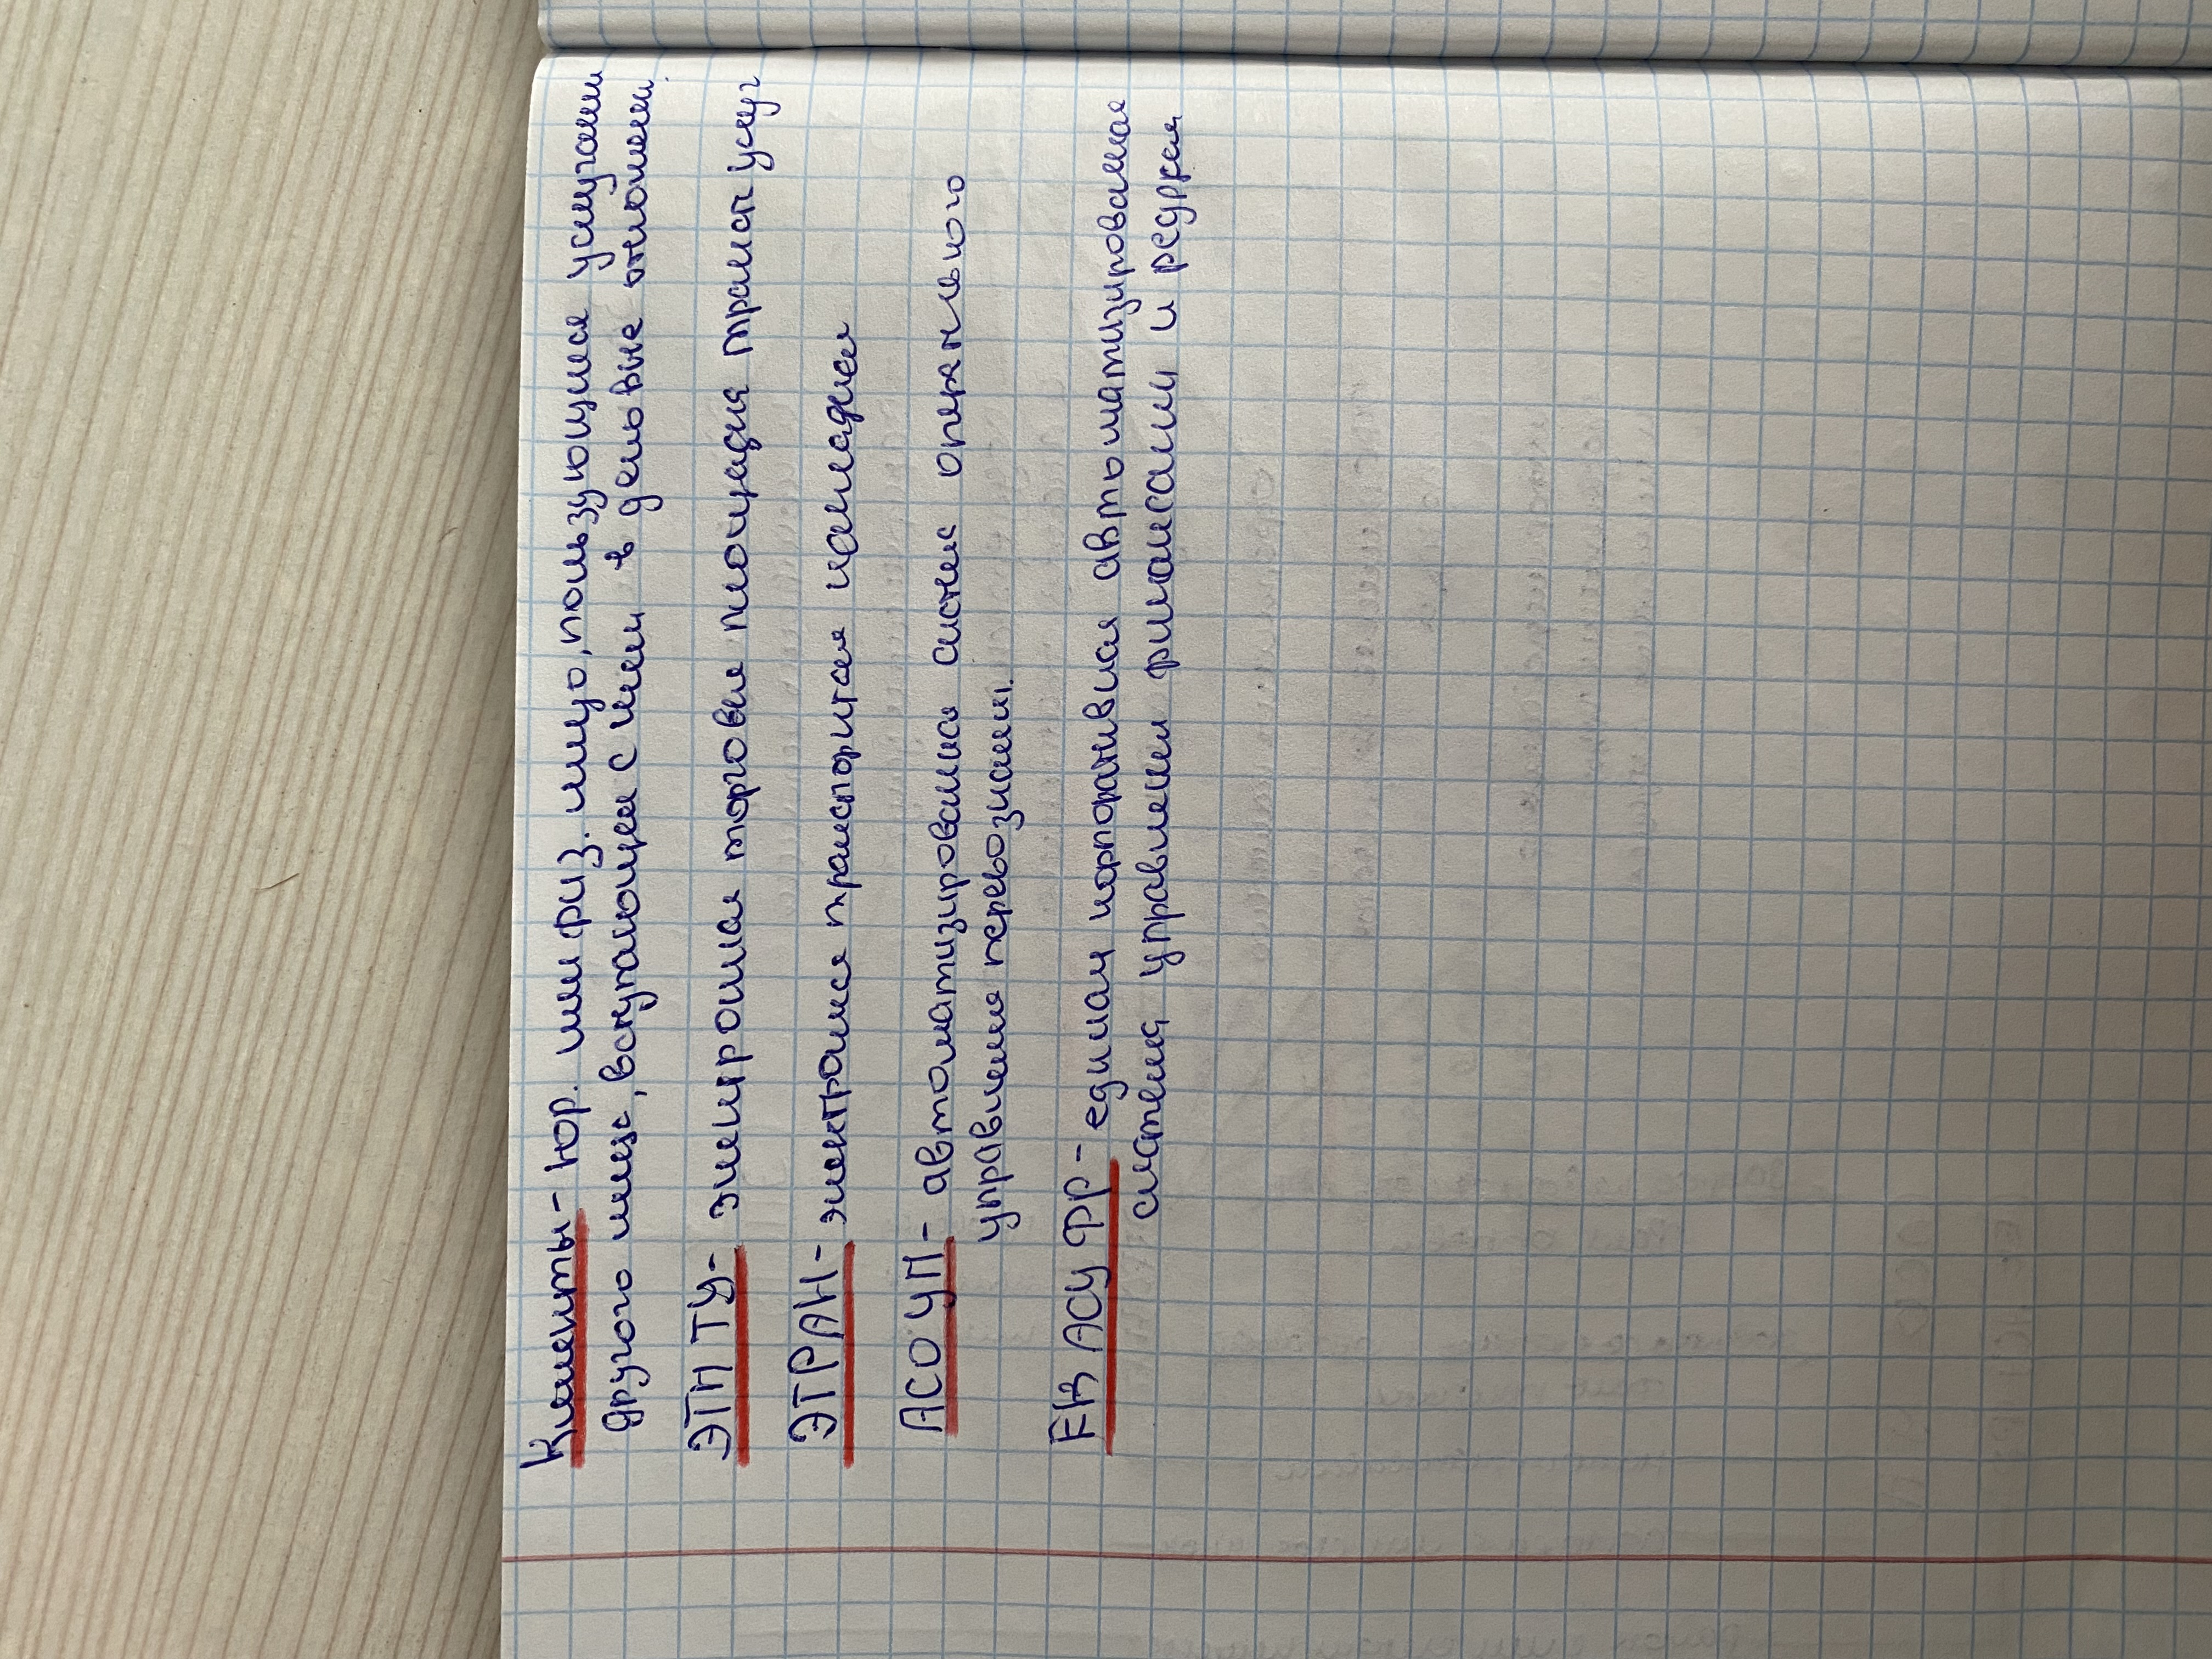 Клиенты - юр. или физ. лицо, пользующиеся услугами
другого лица, вступающее с ним в деловые отношения
ЭТП ТУ - электронная торговая площадка трансп услуг
ЭТРАН - электронная транспортная накладная
АСОУП - автоматизированная система оперативного
управление перевозками.
ЕК АСУ ФР - единая корпоративная автоматизированная
система управлении финансами и ресурсами